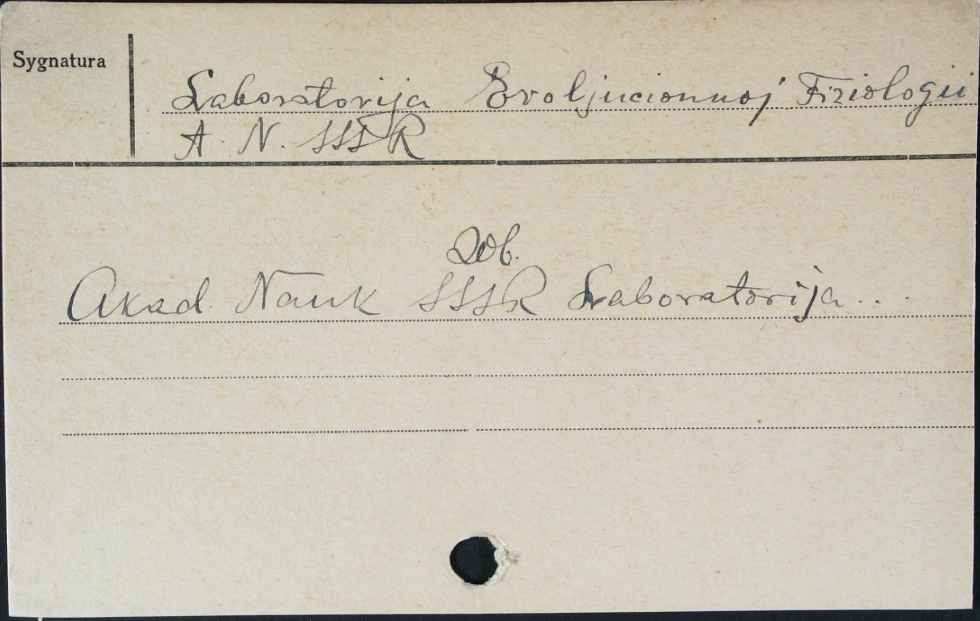 Sygnatura
Laboratorija Evoljucionnoj Fiziologii
A. N. SSSR
Zob.
Akad. Nauk SSSR Laboratorija...